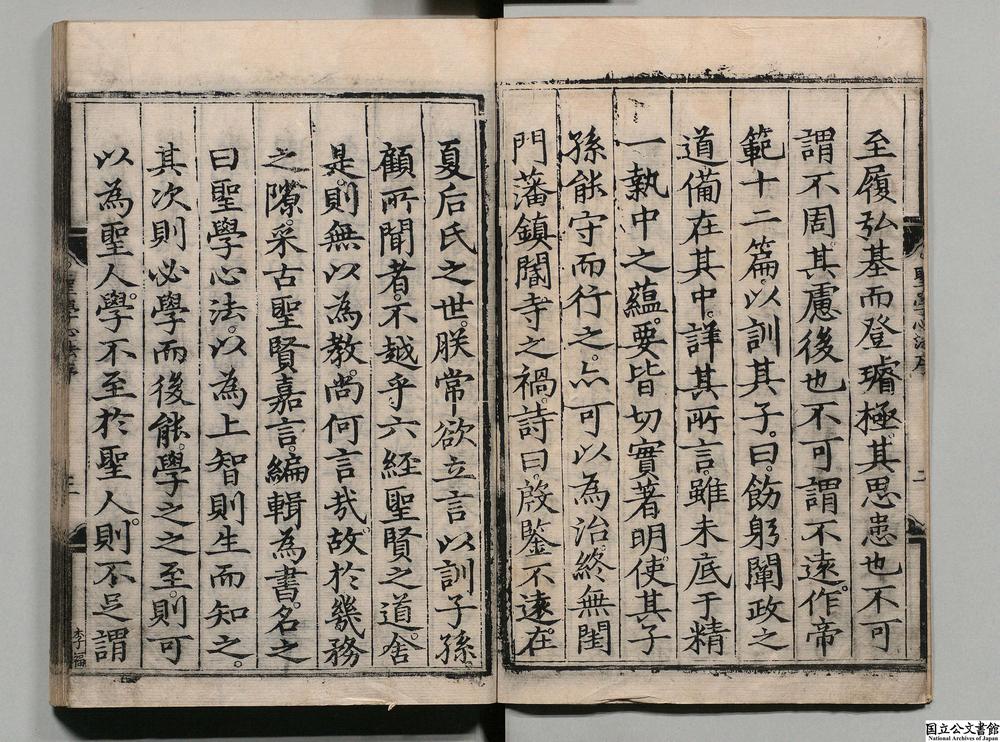 至履弘基而登璿極其思患也不可
謂不周其慮後也不可謂不遠。作帝
範十二篇。以訓其子。曰。飭躬闡政之
道備在其中。詳其所言。雖未底于精
一執中之蘊。要皆切實著明。使其子
孫能守而行之。亦可以為治。終無閨
門藩鎮閽寺之禍。詩曰。殷鑒不遠。在
聖學心法序
二
夏后氏之世。朕常欲立言以訓子孫
顧所聞者。不越乎六經聖賢之道。舍
是。則無以為教。尚何言哉。故於幾務
之隙。采古聖賢嘉言。編輯為書。名之
曰聖學心法。以為上智則生而知之。
其次則必學而後能。學之之至。則可
以為聖人。學不至於聖人。則不足謂
聖學心法序
李福
国立公文書館
National Archives of Japan